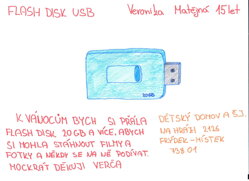 FLASH DISK USB
Veronika Matějná 15 let
20GB
K VÁNOCŮM BYCH SI PŘÁLA
FLASH DISK 20GB A VÍCE, ABYCH
SI MOHLA STÁHNOUT FILMY A
FOTKY A NĚKDY SE NA NĚ PODÍVAT.
MOCKRÁT DĚKUJI VERČA
DĚTSKÝ DOMOV A ŠJ.
NA HRÁZI 2126
FRÝDEK-MÍSTEK
738 01